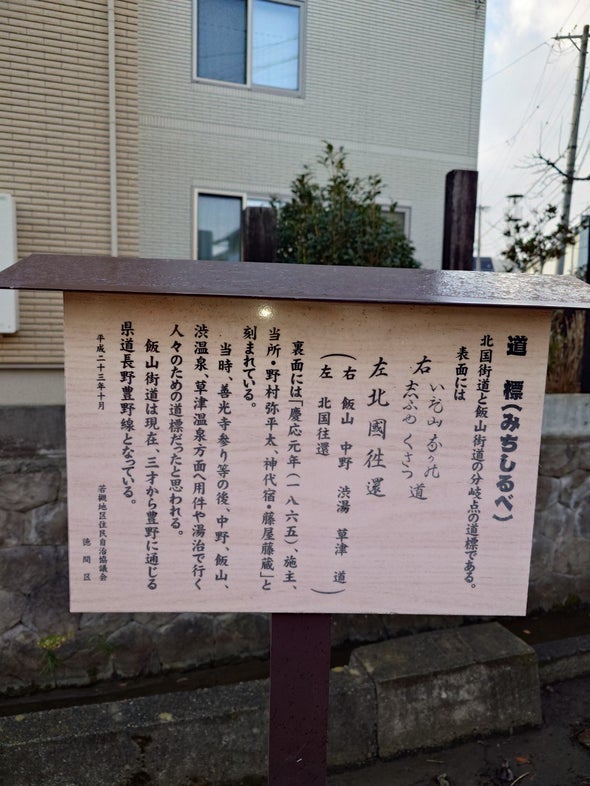 道 標(みちしるべ)
北国街道と飯山街道の分岐点の道標である。
表面には
右 いひ山 なか乃
志ふゆ くさつ 道
左 北國往還
(右 飯山 中野 渋湯 草津 道)
(左 北国往還)
裏面には「慶応元年(一八六五)、施主、
当所・野村弥平太、神代宿・藤屋藤蔵」と
刻まれている。
当時、善光寺参り等の後、中野、飯山、
渋温泉、草津温泉方面へ用件や湯治で行く
人々のための道標だったと思われる。
飯山街道は現在、三才から豊野に通じる
県道長野豊野線となっている。
平成二十三年十月
若槻地区住民自治協議会
徳間区